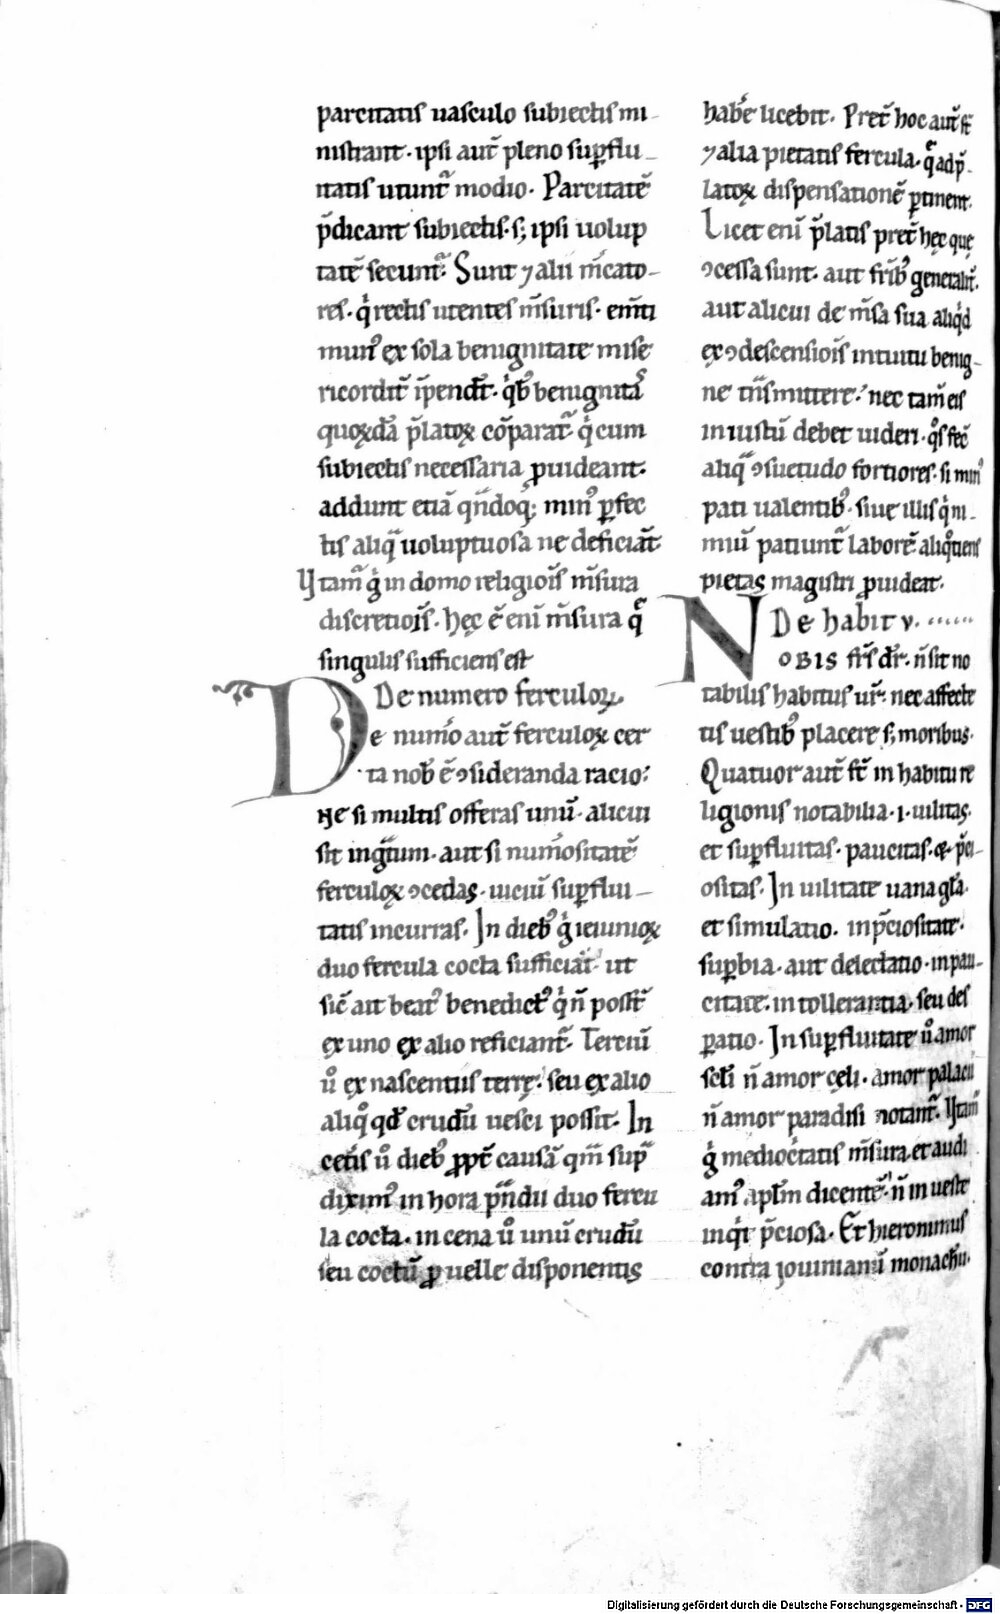 parcitatis uasculo subiectis mi-
nistrant. ipsi aut̄ pleno sup̄flu-
itatis utunt᷑ modio. Parcitatē
p̄dicant subiectis. s; ipsi uolup
tatē secunt᷑. Sunt ⁊ alii m̄cato-
res. qͥ rectis utentes m̄suris. em̄ti
munꝰ ex sola benignitate mise
ricordit᷑ īpendūt. qͥbꝰ benignitas
quoꝝdā p̄latoꝝ cōparat᷑. qͥ cum
subiectis necessaria ꝓuideant.
addunt etiā qn̄doq; minꝰ ꝑfec
tis aliqͣ uoluptuosa ne deficiāt
Vtam᷑ gͥ in domo religiois̄ m̄sura
discretiois̄. hęc ē eni m̄sura qͤ
singulis sufficiens est
De numero ferculoꝝ
De num̄o aut̄ ferculoꝝ cer
ta nob̄ ē ꝯsideranda racio:
Ne si multis offeras unū. alicui
sit ingͣtum. aut si num̄ositatē
ferculoꝝ ꝯcedas. uiciū sup̄flui-
tatis incurras. In diebꝰ gͥ ieiunioꝝ
duo fercula cocta sufficiāt. ut
sic̄ ait beatꝰ benedictꝰ qͥ n̄ possīt
ex uno ex alio reficiant᷑. Terciū
ů ex nascentiis terrę. seu ex alio
aliqͦ qd̄ crudū uesci possit. In
cet̄is ů diebꝰ ꝓpt̄ causā qͣm supͣ
diximꝰ in hora pͣndii duo fercu
la cocta. in cena ů unū crudū
seu coctū ꝓ uelle disponentis
hab̄e licebit. Pret̄ hoc aut̄ st̄
⁊ alia pietatis fercula. qͤ ad p̄
latoꝝ dispensationē ꝑtinent.
Licet eni p̄latis pret̄ hęc quę
ꝯcessa sunt. aut fr̄ibꝰ generalit̄.
aut alicui de m̄sa sua aliqͥd
ex ꝯdescensiois̄ intuitu benig-
ne tͣnsmittere. nec tam̄ eis
iniustū debet uideri. qͦs fec̄
aliqͣ ꝯsuetudo fortiores. si minꝰ
pati ualentibꝰ. siue illis qͥ ni-
miū patiunt᷑ laborē aliqͦtiens
pietas magistri ꝓuideat.
De habitu.......
NOBIS fr̄s dr̄. n̄ sit no
tabilis habitus ur̄. nec affecte
tis uestibꝰ placere s; moribus.
Quatuor aut̄ st̄ in habitu re
ligionis notabilia. .i. uilitas.
et sup̄fluitas. paucitas. & p̄ci-
ositas. In uilitate uana gl̄a.
et simulatio. in p̄ciositate.
sup̄bia. aut delectatio. in pau-
citate. intollerantia. seu des
ꝑatio. In sup̄fluitate ů amor
sc̄li n̄ amor cęli. amor palacii
n̄ amor paradisi notant᷑. Vtam᷑
gͥ mediocͥtatis m̄sura. et audi
amꝰ apl̄m dicentē. n̄ in ueste
inqͥt p̄ciosa. Et hieronimus
contra iouinianū monachū.
Digitalisierung gefördert durch die Deutsche Forschungsgemeinschaft - DFG